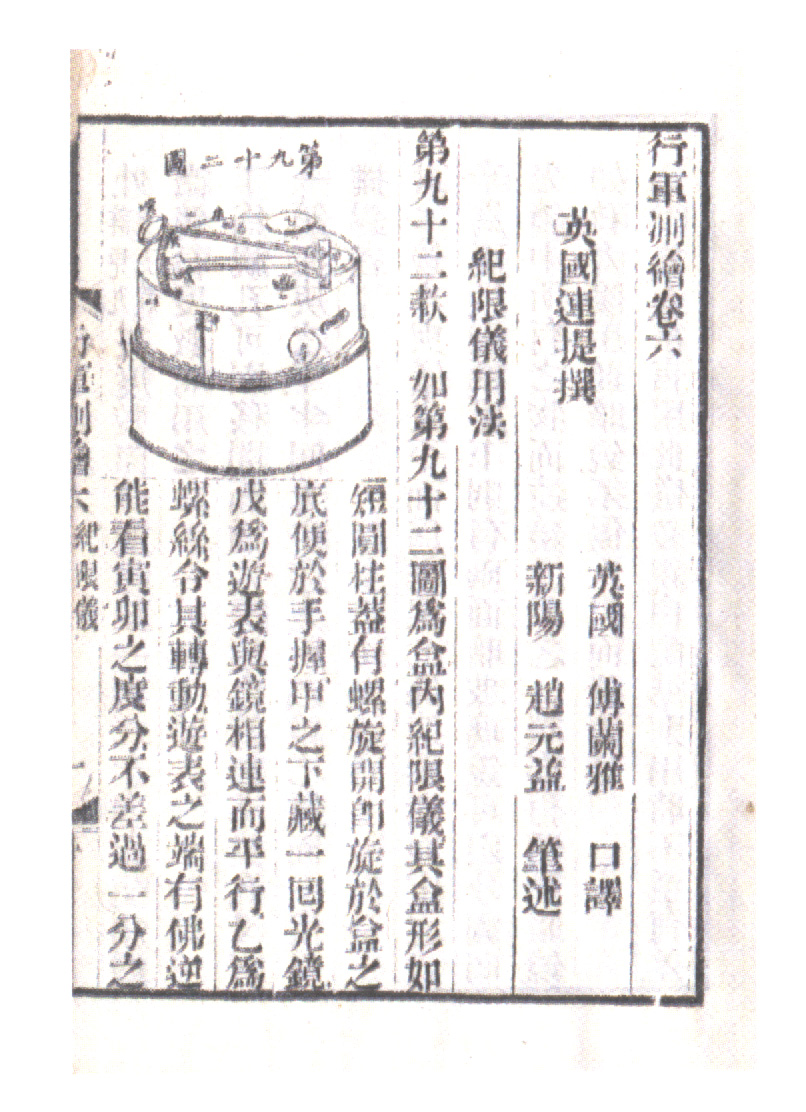 行軍測繪卷六
英國連提撰
英國 傅蘭雅 口譯
新陽 趙元益 筆述
紀限儀用法
第九十二款 如第九十二圖爲盒內紀限儀其盒形如
第九十二圖
短圓柱蓋有螺旋開即旋於盒之
底便於手握甲之下藏一回光鏡
戊爲遊表與鏡相連而平行乙爲
螺絲令其轉動遊表之端有佛逆
能看寅卯之度分不差過一分之
行軍測繪六 紀限儀